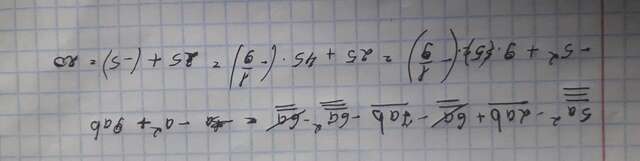 5a² - 2ab + 6a - 7ab - 6a² - 6a = - a² + 9ab
- 5² + 9 · (5) · (- 1/9) = 25 + 45 · (- 1/9) = 25 + (-5) = 20